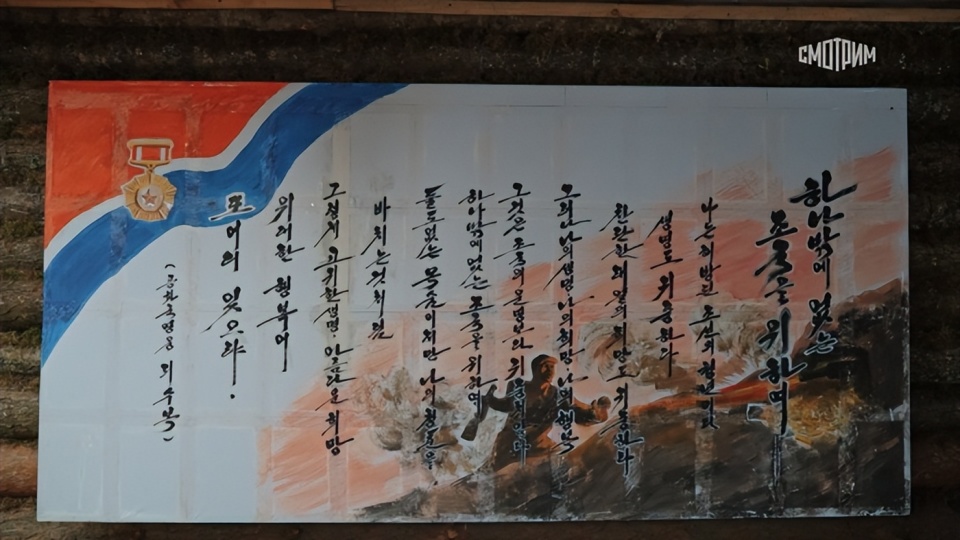 СМОТРИМ
하나밖에 없는
조국을 위하여
나는 해방된 조선의 청년이다
생명도 귀중하다
찬란한 래일의 희망도 귀중하다
그러나 나의 생명, 나의 희망, 나의 행복,
그것은 조국의 운명보다 귀중치 않다
하나밖에 없는 조국을 위하여
둘도 없는 목숨이지만 나의 청춘을
바치는것처럼
그렇게 고귀한 생명, 아름다운 희망
위대한 행복이
또 어디 있으랴.
(공화국영웅 리수복)